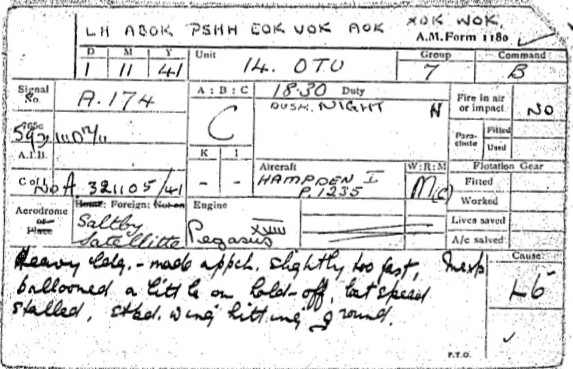 LH ABOK PSHH EOK VOK AOK XOK WOK.
A.M. Form 1180
D M Y Unit Group Command
1 11 41 14. OTU 7 B
Signal No. A.174
A : B : C 18.30 Duty
C DUSK. NIGHT N
Fire in air or impact NO
Parachute Fitted
Used
A.I.B.
K I
- -
Aircraft W : R : M
HAMPDEN I M(C)
P.1235
Flotation Gear
Fitted
Worked
Lives saved
A/c salved
C of I. No A 321105/41
Aerodrome or Place
Home: Foreign: Not on
Saltby
Satellitte
Engine
Pegasus XVIII
Heavy ldg. - made appch. slightly too fast, Inexp
ballooned a little on hold-off, lost speed
stalled, stbd. wing hitting ground.
Cause
L6
P.T.O.